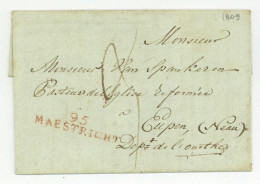 1809
Monsieur
Monsieur Van Spankeren
Pasteur de l'Eglise reformée
à
Eupen, (Neau)
Dep.t de l'ourthe
95
MAESTRICHT